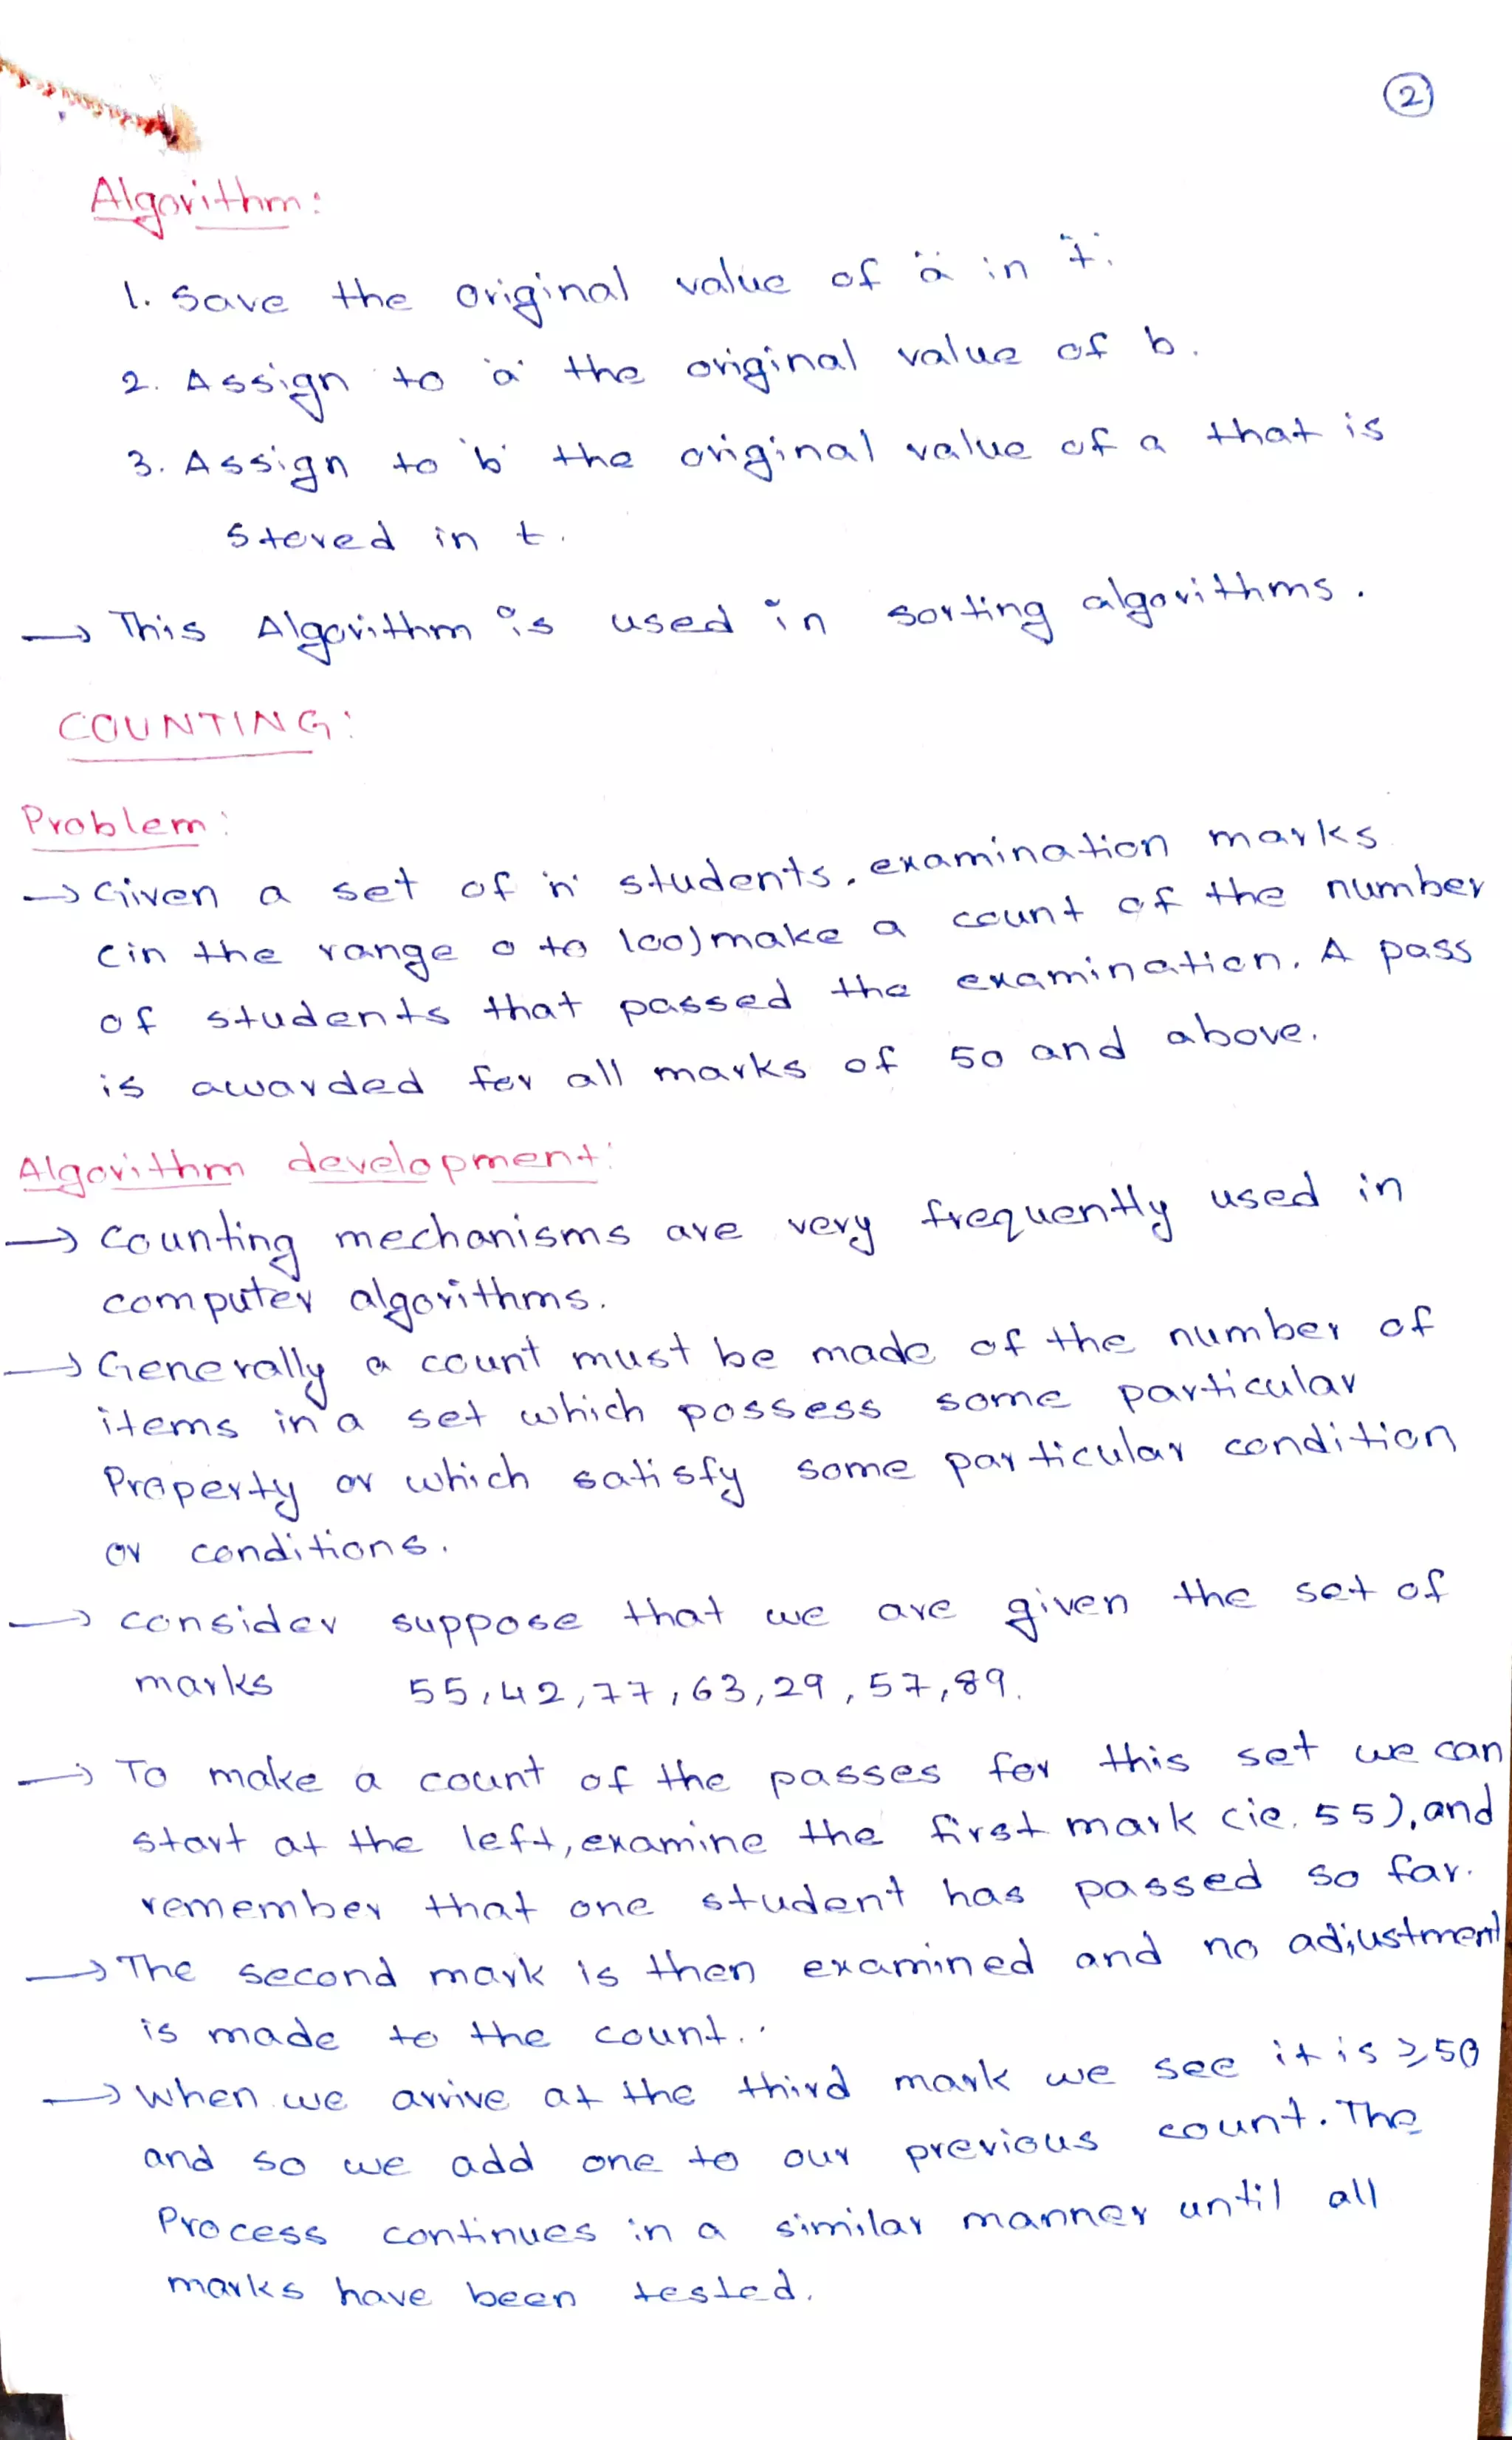 2
Algorithm:
1. Save the original value of "a" in "t".
2. Assign to 'a' the original value of b.
3. Assign to 'b' the original value of a that is
stored in t.
→ This Algorithm is used in sorting algorithms.
COUNTING:
Problem:
→ Given a set of 'n' students, examination marks
(in the range 0 to 100) make a count of the number
of students that passed the examination. A pass
is awarded for all marks of 50 and above.
Algorithm development:
→ Counting mechanisms are very frequently used in
computer algorithms.
→ Generally a count must be made of the number of
items in a set which possess some particular
Property or which satisfy some particular condition
or conditions.
→ consider suppose that we are given the set of
marks 55, 42, 77, 63, 29, 57, 89.
→ To make a count of the passes for this set we can
start at the left, examine the first mark (ie. 55), and
remember that one student has passed so far.
→ The second mark is then examined and no adjustment
is made to the count.
→ When we arrive at the third mark we see it is ≥ 50
and so we add one to our previous count. The
Process continues in a similar manner until all
marks have been tested.